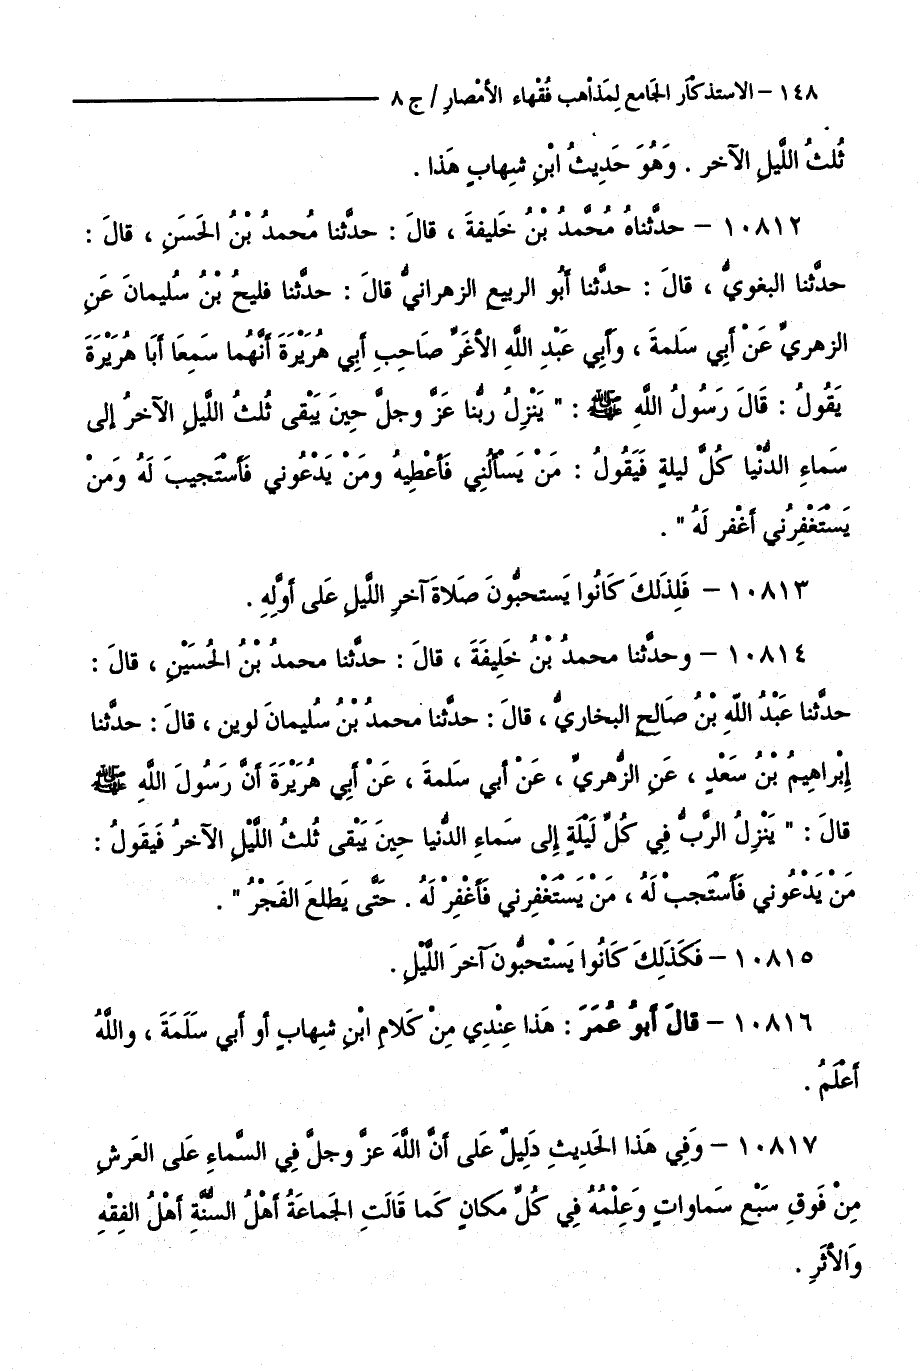 ١٤٨ – الاستذكار الجَامع لِمَذاهب فُقْهاء الأمْصارِ / ج ٨
ثُلثُ اللَّيلِ الآخر . وَهُوَ حَدِيثُ ابْنِ شهابٍ هَذا .
١٠٨١٢ – حدَّثناهُ مُحَمَّدُ بْنُ خَليفةَ ، قالَ : حدَّثنا مُحمدُ بْنُ الحَسَنِ ، قالَ :
حدَّثنا البغويُّ ، قالَ : حدَّثنا أَبُو الربيع الزهرانيُّ قالَ : حدَّثنا فليحُ بْنُ سُليمانَ عَنِ
الزهريِّ عَنْ أَبِي سَلمةَ ، وَأَبِي عَبْدِ اللَّهِ الأغَرِّ صَاحِبِ أَبِي هُرَيْرَةَ أَنَّهُما سَمِعَا أَبَا هُرَيْرَةَ
يَقُولُ : قَالَ رَسُولُ اللَّهِ ﷺ : " يَنْزِلُ ربُّنا عَزَّ وجلَّ حِينَ يَبْقى ثُلثُ اللَّيلِ الآخرُ إلى
سَماءِ الدُّنْيا كُلَّ ليلةٍ فَيَقُولُ : مَنْ يَسألُنِي فَأعْطِيهُ ومَنْ يَدْعُوني فَأسْتَجيبَ لَهُ وَمَنْ
يَسْتَغْفِرُني أغْفر لَهُ " .
١٠٨١٣ – فَلِذَلكَ كَانُوا يَستحبُّونَ صَلاةَ آخرِ اللَّيلِ عَلى أوَّلِهِ .
١٠٨١٤ – وحدَّثنا محمدُ بْنُ خَلِيفَةَ ، قالَ : حدَّثنا محمدُ بْنُ الحُسَيْنِ ، قالَ :
حدَّثنا عَبْدُ اللّهِ بْنُ صَالحٍ البخاريُّ ، قالَ : حدَّثنا محمدُ بْنُ سُليمانَ لوين ، قالَ : حدَّثنا
إبْراهِيمُ بْنُ سَعْدٍ ، عَنِ الزُّهريِّ ، عَنْ أبي سَلمةَ ، عَنْ أَبِي هُرَيْرَةَ أَنَّ رَسُولَ اللَّهِ ﷺ
قالَ : " يَنْزِلُ الرَّبُّ فِي كُلِّ لَيْلَةٍ إِلى سَماءِ الدُّنيا حِينَ يَبْقى ثُلثُ اللَّيْلِ الآخرُ فَيَقولُ :
مَنْ يَدْعُوني فَأَسْتَجبْ لَهُ ، مَنْ يَسْتَغْفِرني فَأغْفِرْ لَهُ . حَتَّى يَطلعَ الفَجْرُ " .
١٠٨١٥ – فكَذَلِكَ كَانُوا يَسْتحبُّونَ آخرَ اللَّيْلِ .
١٠٨١٦ – قالَ أبُو عُمَرَ : هَذا عِنْدِي مِنْ كَلامِ ابْنِ شهابٍ أو أبي سَلَمَةَ ، واللَّهُ
أعْلَمُ .
١٠٨١٧ – وَفِي هَذا الحَديثِ دَلِيلٌ عَلى أنَّ اللَّهَ عزَّ وجلَّ فِي السَّماءِ عَلى العَرشِ
مِنْ فَوقِ سَبْعِ سَماواتٍ وَعِلْمُهُ فِي كُلِّ مَكانٍ كَما قالَتِ الجَماعَةُ أهْلُ السُّنَّةِ أهْلُ الفِقْهِ
وَالأثَرِ .